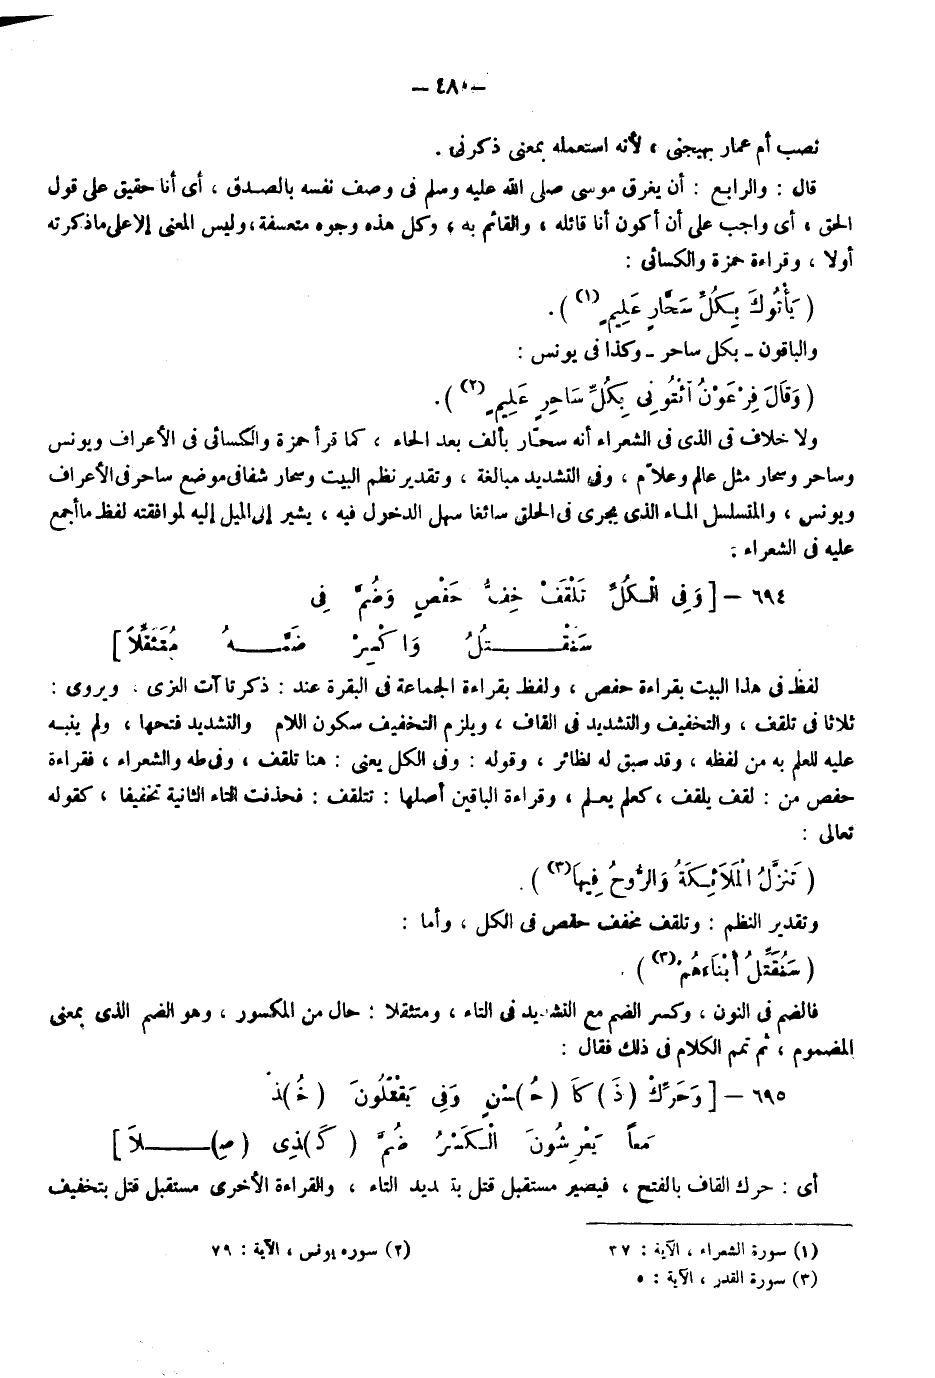 — ٤٨٠ —
نصب أم عمار بهيجنى ، لأنه استعمله بمعنى ذكرنى .
قال : والرابع : أن يغرق موسى صلى الله عليه وسلم فى وصف نفسه بالصدق ، أى أنا حقيق على قول
الحق ، أى واجب على أن أكون أنا قائله ، والقائم به ، وكل هذه وجوه متعسفة ، وليس المعنى إلا على ما ذكرته
أولا ، وقراءة حمزة والكسائى :
( يَأْتُوكَ بِكُلِّ سَحَّارٍ عَلِيمٍ (١) ) .
والباقون ــ بكل ساحر ــ وكذا فى يونس :
( وَقَالَ فِرْعَوْنُ ائْتُونِى بِكُلِّ سَاحِرٍ عَلِيمٍ (٢) ) .
ولا خلاف فى الذى فى الشعراء أنه سحّار بألف بعد الحاء ، كما قرأ حمزة والكسائى فى الأعراف ويونس
وساحر وسحار مثل عالم وعلاّم ، وفى التشديد مبالغة ، وتقدير نظم البيت وسحار شفا فى موضع ساحر فى الأعراف
ويونس ، والمتسلسل الماء الذى يجرى فى الحلق سائغا سهل الدخول فيه ، يشير إلى الميل إليه لموافقته لفظ ما أجمع
عليه فى الشعراء :
٦٩٤ — [ وَفِى الْكُلِّ تَلْقَفْ خِفُّ حَفْصٍ وَضُمَّ فِى
سَنَقْـــتُلُ وَاكْسِرْ ضَمَّـــهُ مُتَثَقِّلاً ]
لفظ فى هذا البيت بقراءة حفص ، ولفظ بقراءة الجماعة فى البقرة عند : ذكر تاآت البزى . ويروى :
ثلاثا فى تلقف ، والتخفيف والتشديد فى القاف ، ويلزم التخفيف سكون اللام والتشديد فتحها ، ولم ينبه
عليه للعلم به من لفظه ، وقد سبق له نظائر ، وقوله : وفى الكل يعنى : هنا تلقف ، وفى طه والشعراء ، فقراءة
حفص من : لقف يلقف ، كعلم يعلم ، وقراءة الباقين أصلها : تتلقف : فحذفت التاء الثانية تخفيفا ، كقوله
تعالى :
( تَنَزَّلُ الْمَلَائِكَةُ وَالرُّوحُ فِيهَا (٣) ) .
وتقدير النظم : وتلقف مخفف حفص فى الكل ، وأما :
( سَنُقَتِّلُ أَبْنَاءَهُمْ (٣) ) .
فالضم فى النون ، وكسر الضم مع التشديد فى التاء ، ومتثقلا : حال من المكسور ، وهو الضم الذى بمعنى
المضموم ، ثم تمم الكلام فى ذلك فقال :
٦٩٥ — [ وَحَرِّكْ (ذَ) كَا (حُ)سْنٍ وَفِى يَقْتُلُونَ (خُ)ذْ
مَعاً يَعْرِشُونَ الْكَسْرُ ضُمَّ (كَ)ذِى (صِ)ــلاَ ]
أى : حرك القاف بالفتح ، فيصير مستقبل قتل بتشديد التاء ، والقراءة الأخرى مستقبل قتل بتخفيف
(١) سورة الشعراء ، الآية : ٣٧
(٢) سورة يونس ، الآية : ٧٩
(٣) سورة القدر ، الآية : ٥